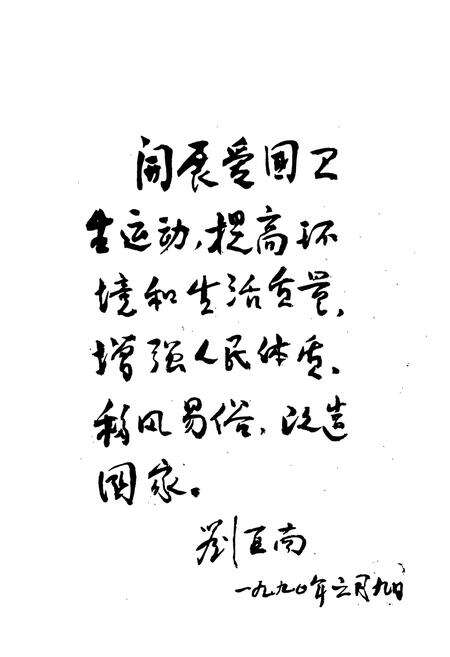 開展爱国卫
生运动,提高环
境和生活质量,
增强人民体质、
移风易俗,改造
国家。
劉
一九九〇年二月九日